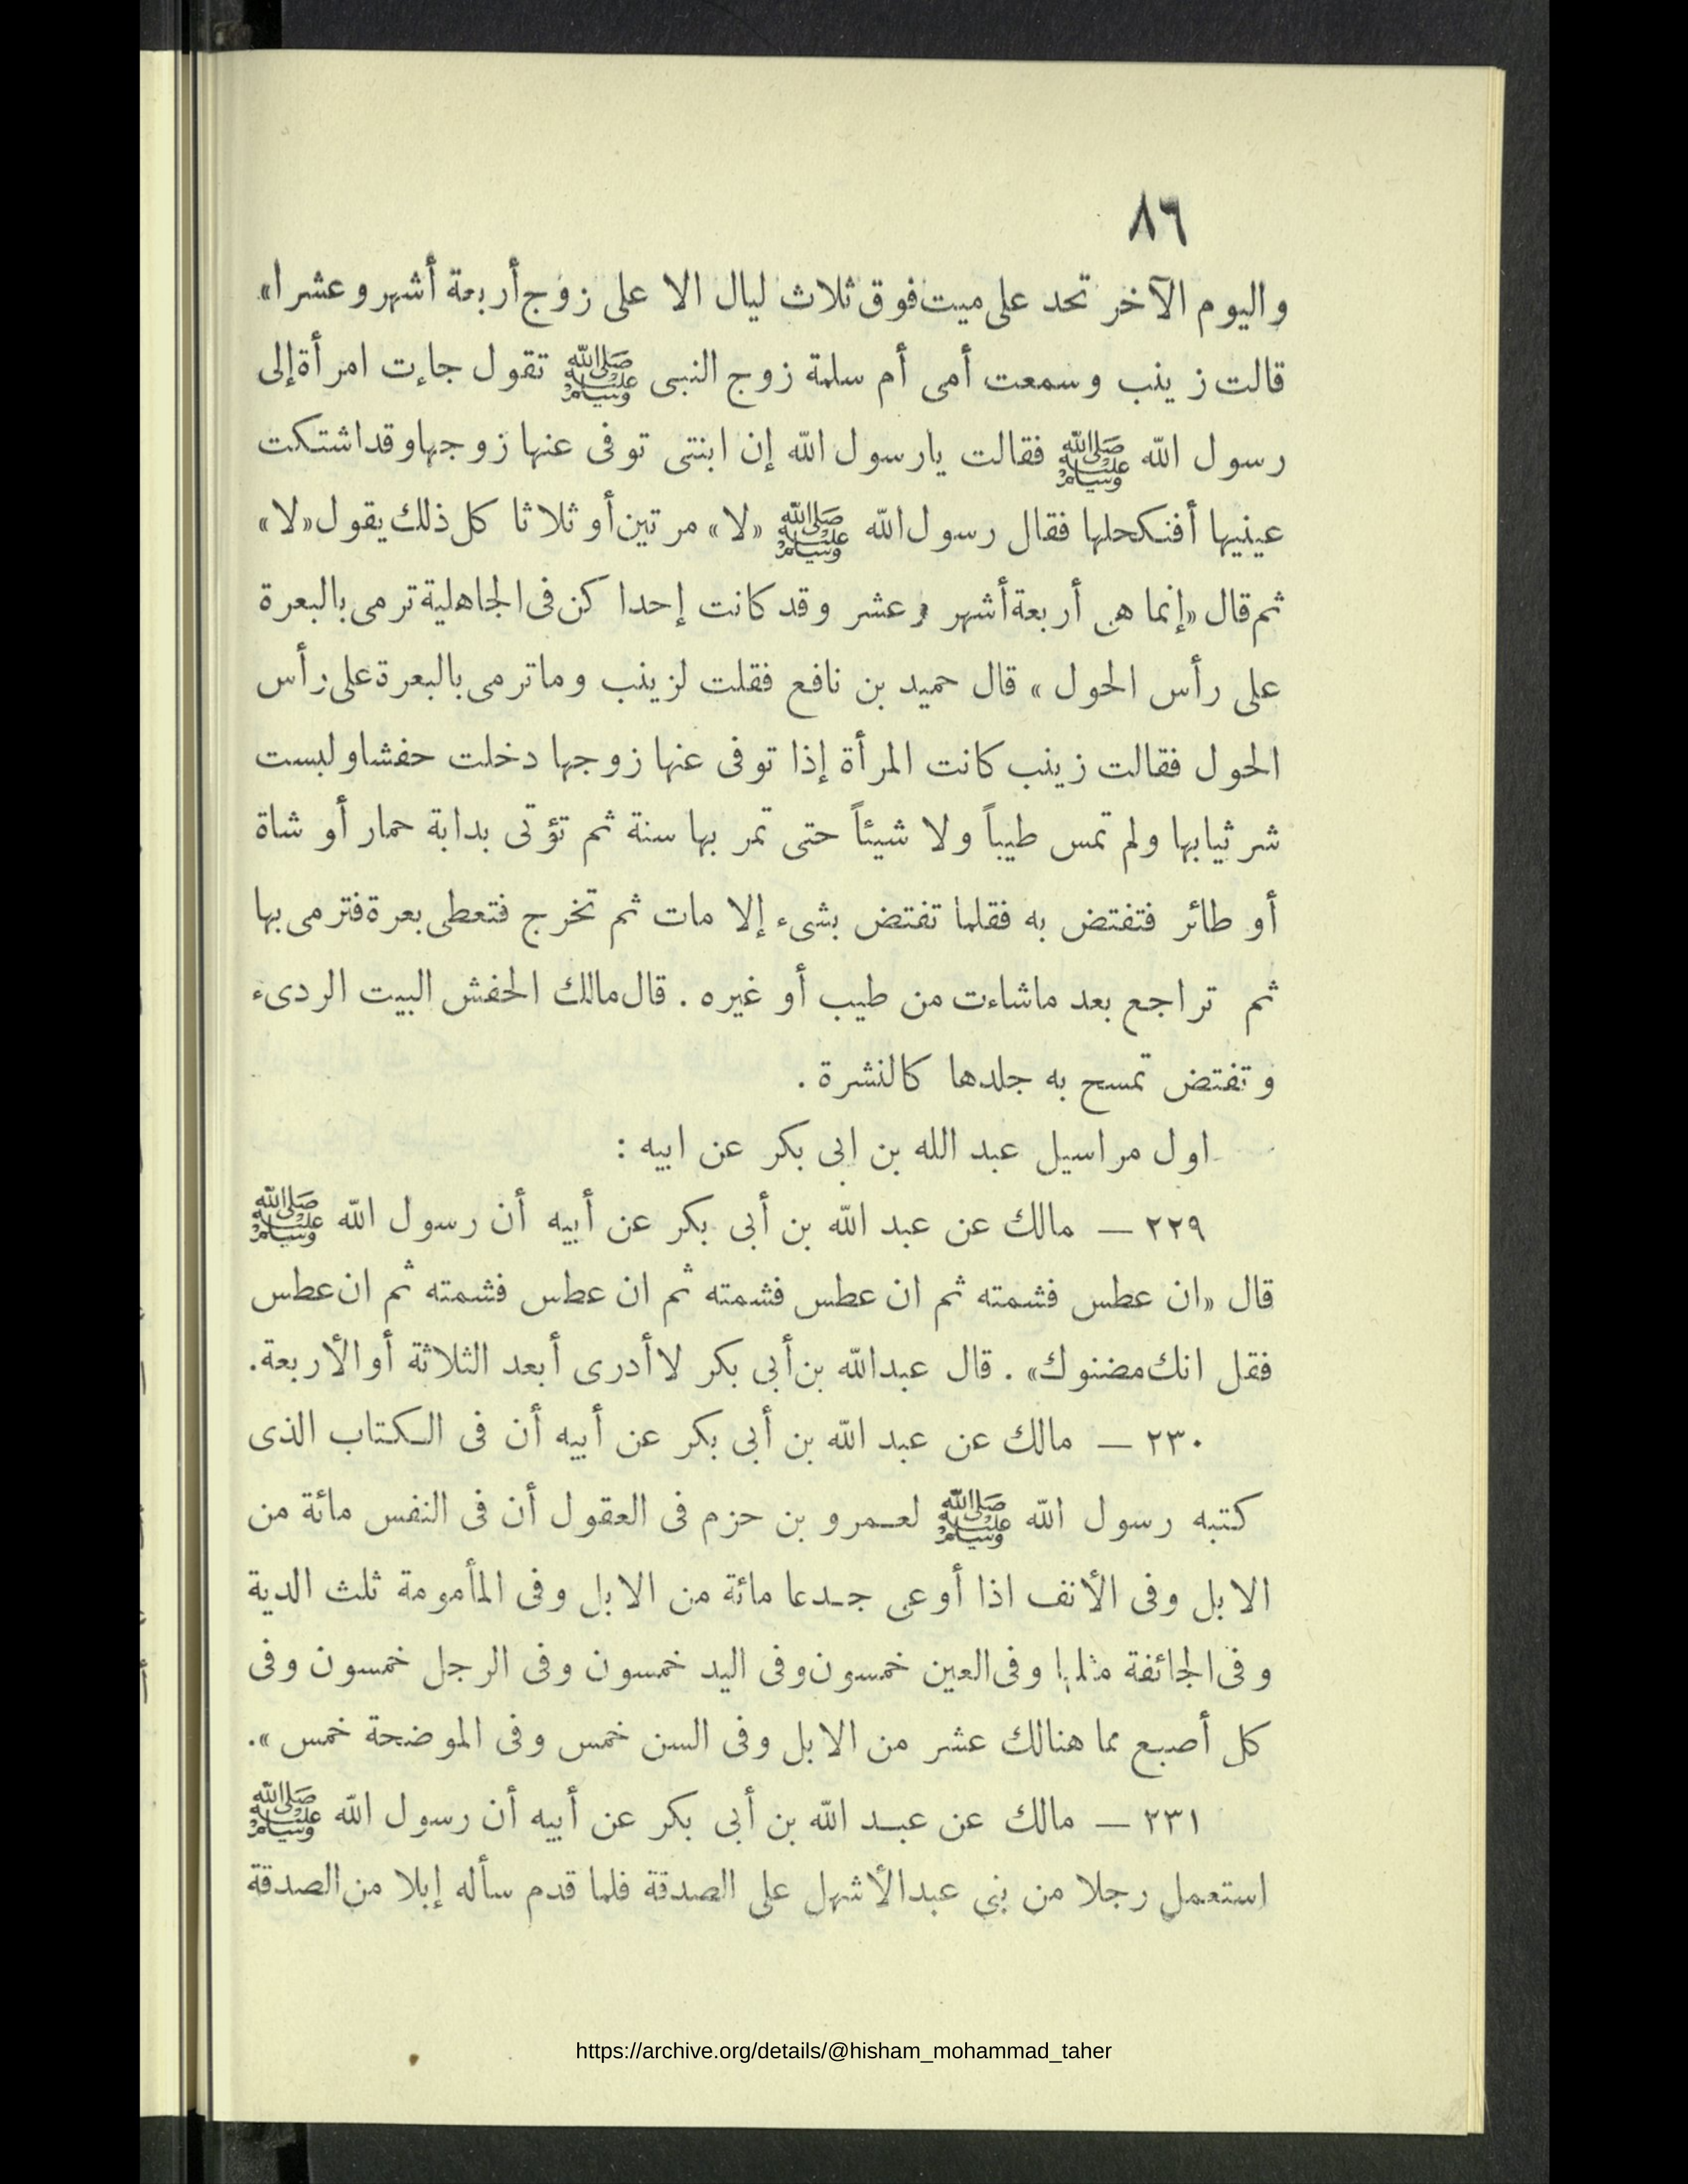 ٨٦
واليوم الآخر تحد على ميت فوق ثلاث ليال الا على زوج أربعة أشهر وعشرا»
قالت زينب وسمعت أمى أم سلمة زوج النبى ﷺ تقول جاءت امرأة إلى
رسول الله ﷺ فقالت يارسول الله إن ابنتى توفى عنها زوجها وقد اشتكت
عينيها أفنكحلها فقال رسول الله ﷺ «لا» مرتين أو ثلاثا كل ذلك يقول «لا»
ثم قال «إنما هى أربعة أشهر وعشر وقد كانت إحدا كن فى الجاهلية ترمى بالبعرة
على رأس الحول» قال حميد بن نافع فقلت لزينب وماترمى بالبعرة على رأس
الحول فقالت زينب كانت المرأة إذا توفى عنها زوجها دخلت حفشا ولبست
شر ثيابها ولم تمس طيباً ولا شيئاً حتى تمر بها سنة ثم تؤتى بدابة حمار أو شاة
أو طائر فتفتض به فقلما تفتض بشىء إلا مات ثم تخرج فتعطى بعرة فترمى بها
ثم تراجع بعد ماشاءت من طيب أو غيره . قال مالك الحفش البيت الردىء
وتفتض تمسح به جلدها كالنشرة .
اول مراسيل عبد الله بن ابى بكر عن ابيه :
٢٢٩ — مالك عن عبد الله بن أبى بكر عن أبيه أن رسول الله ﷺ
قال «ان عطس فشمته ثم ان عطس فشمته ثم ان عطس فشمته ثم ان عطس
فقل انك مضنوك» . قال عبدالله بن أبى بكر لا أدرى أبعد الثلاثة أو الأربعة.
٢٣٠ — مالك عن عبد الله بن أبى بكر عن أبيه أن فى الكتاب الذى
كتبه رسول الله ﷺ لعمرو بن حزم فى العقول أن فى النفس مائة من
الابل وفى الأنف اذا أوعى جدعا مائة من الابل وفى المأمومة ثلث الدية
وفى الجائفة مثلها وفى العين خمسون وفى اليد خمسون وفى الرجل خمسون وفى
كل أصبع مما هنالك عشر من الابل وفى السن خمس وفى الموضحة خمس».
٢٣١ — مالك عن عبد الله بن أبى بكر عن أبيه أن رسول الله ﷺ
استعمل رجلا من بنى عبدالأشهل على الصدقة فلما قدم سأله إبلا من الصدقة
https://archive.org/details/@hisham_mohammad_taher